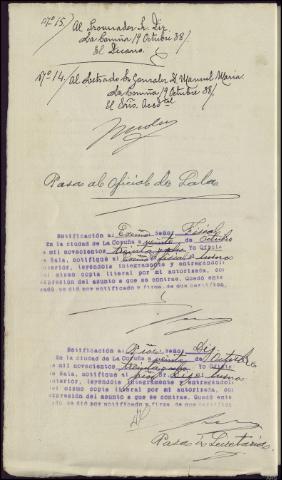 nº 15/ Al Procurador Sr. Diz
La Coruña 19 Octubre 38/
El Decano
nº 14./ Al Letrado Sr. Gonzalez D. Manuel Maria
La Coruña 19 Octubre 38/
El Srio. Acctal
Pasa al Oficial de Sala
Notificación al Excmo Señor Fiscal
En la ciudad de La Coruña a veinte de Octubre
de mil novecientos treinta y ocho Yo Oficial
de Sala, notifiqué al Excmo Fiscal
anterior, leyéndole íntegramente y entregándole
al mismo copia literal por mí autorizada, con
expresión del asunto a que se contrae. Quedó ente
rado se dió por notificado y firma de que certifico.
Notificación al Pror. Señor Diz
En la ciudad de La Coruña a veinte de Octubre
de mil novecientos treinta y ocho Yo Oficial
de Sala, notifiqué al Diz
anterior, leyéndole íntegramente y entregándole
al mismo copia literal por mí autorizada, con
expresión del asunto a que se contrae. Quedó ente
rado se dió por notificado y firma de que certifico
Pasa a Secretaría